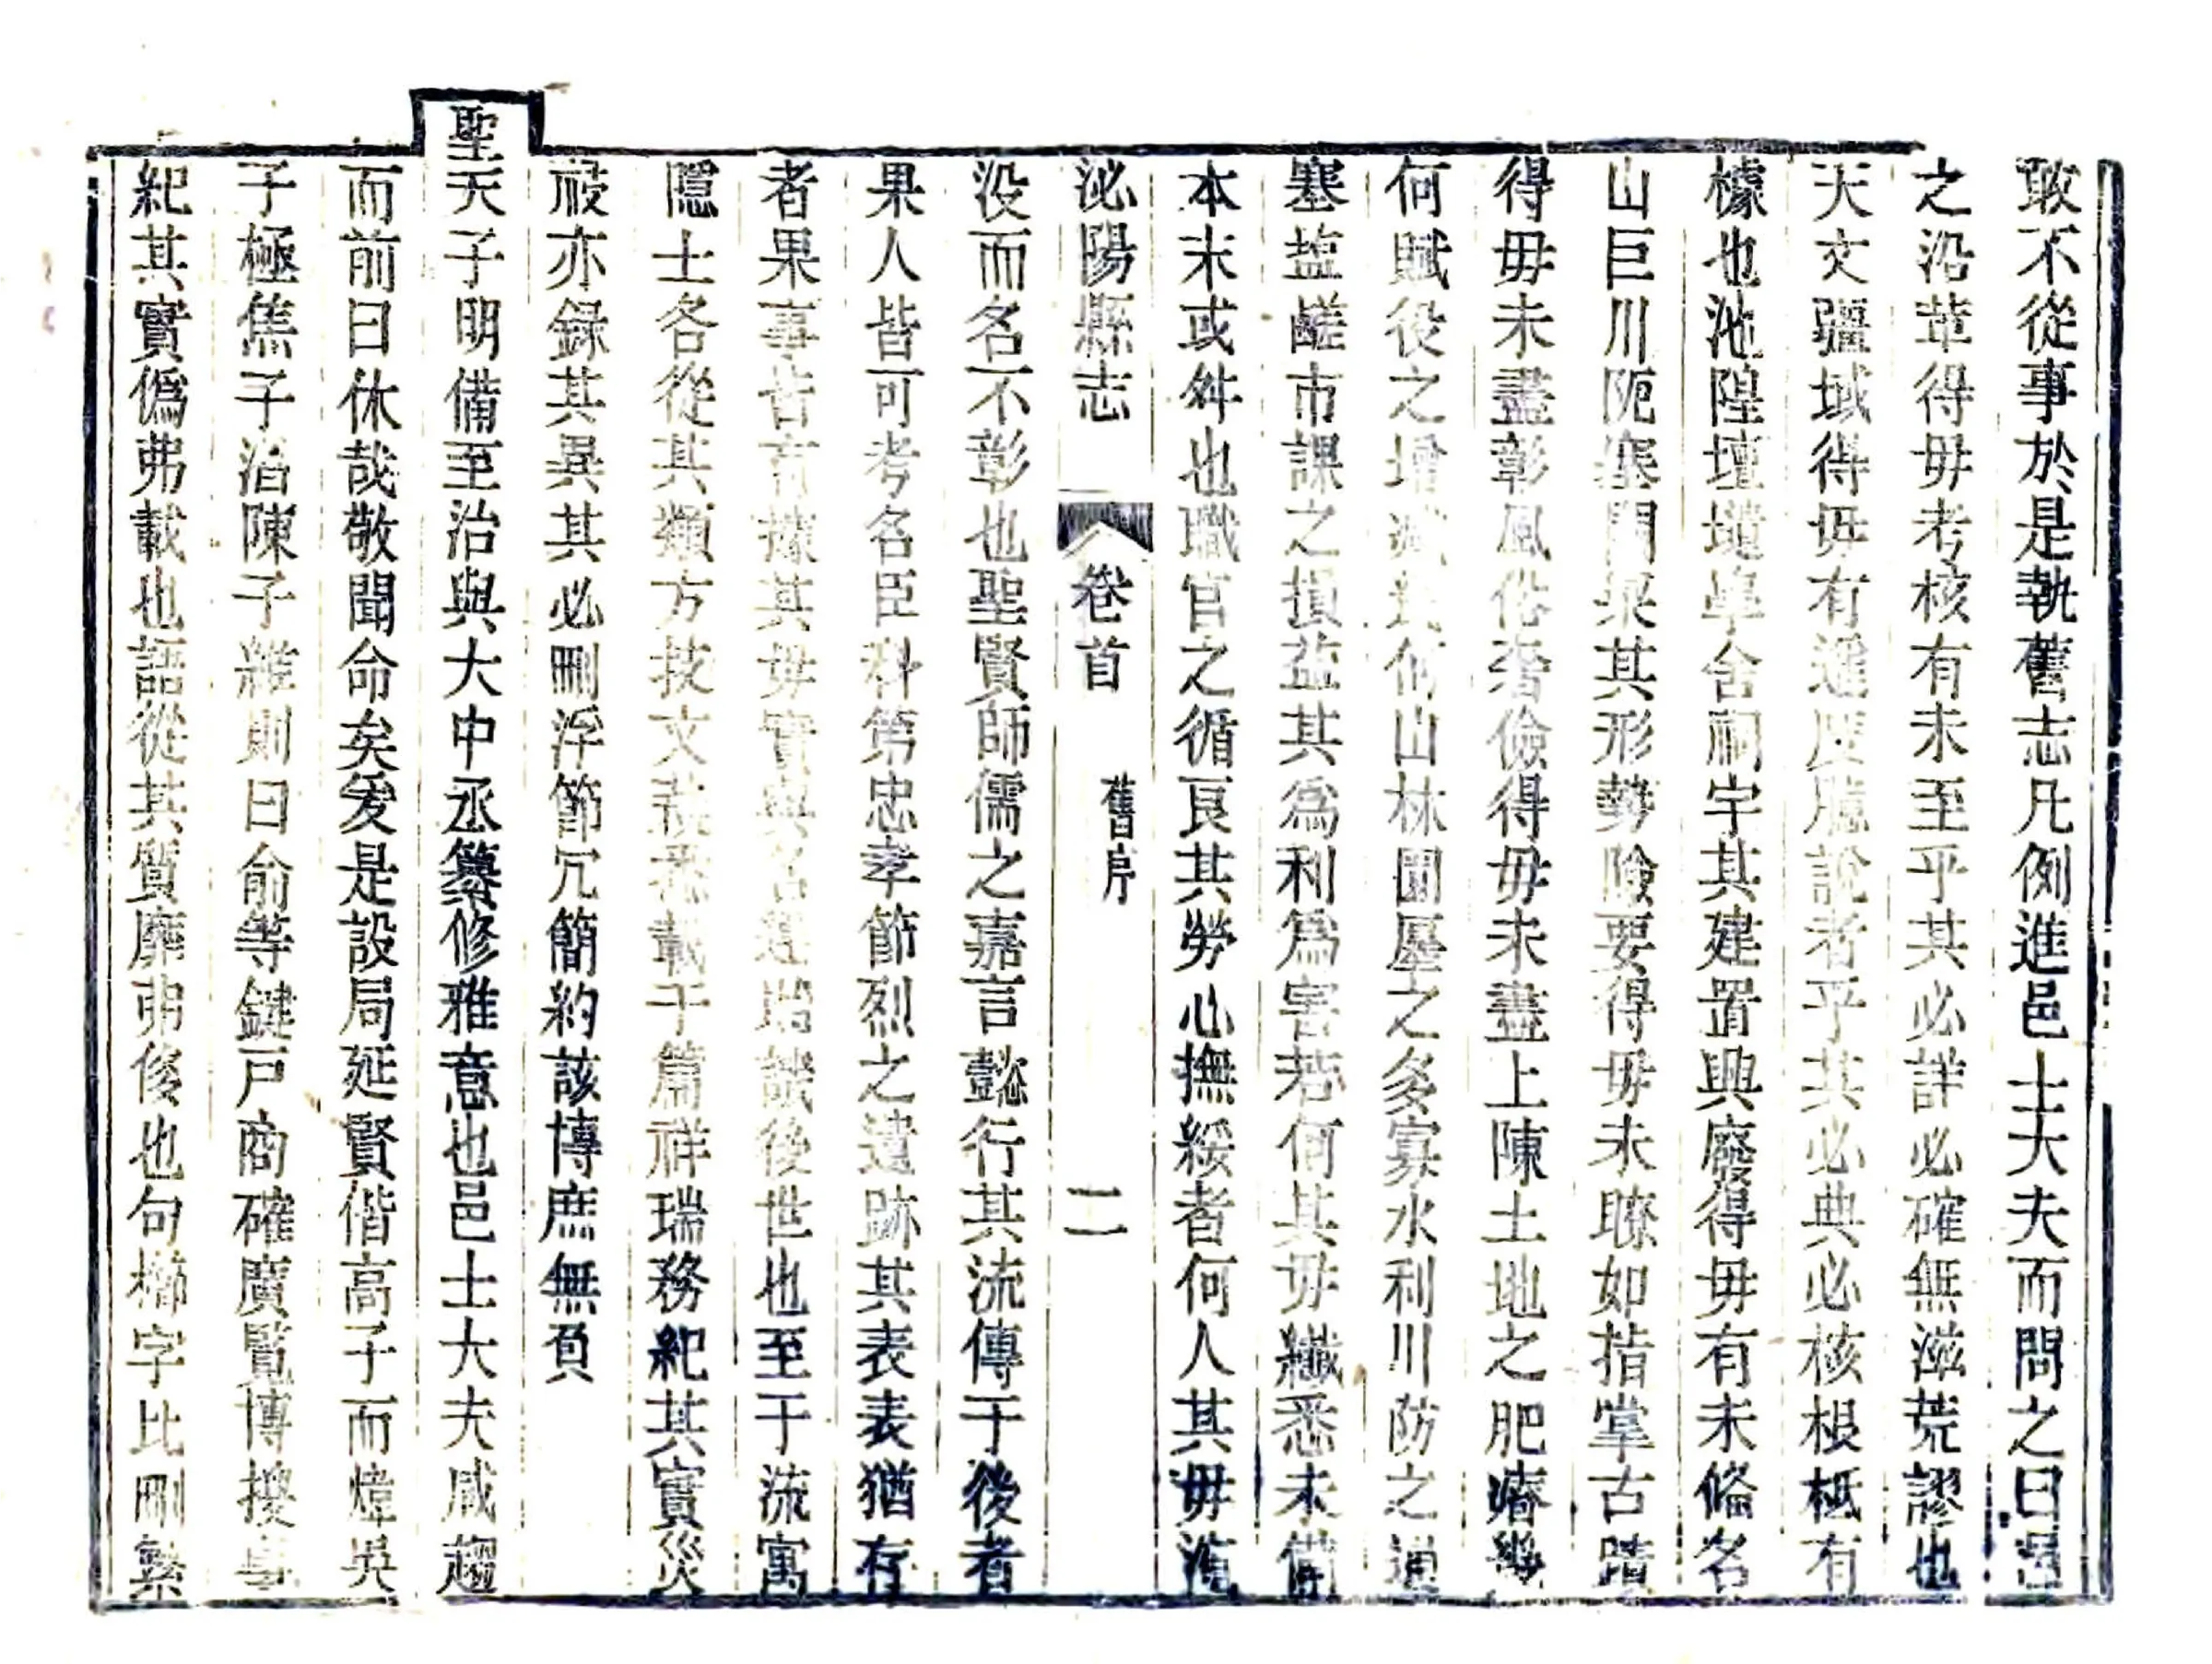 敢不從事於是執舊志凡例進邑士大夫而問之曰邑
之沿革得毋考核有未至乎其必詳必確無滋荒謬也
天文疆域得毋有遥度臆說者乎其必典必核根柢有
據也池隍壇壝阜舍祠宇其建置興廢得毋有未備名
山巨川阨塞關梁其形勢險要得毋未瞭如指掌古蹟
得毋未盡彰風俗奢儉得毋未盡上陳土地之肥瘠幾
何賦役之增減幾何山林園廛之多寡水利川防之通
塞塩鹺市課之損益其為利為害若何其毋纖悉未備
本末或舛也職官之循良其勞心撫綏者何人其毋湮
泌陽縣志 卷首 舊序 二
没而名不彰也聖賢師儒之嘉言懿行其流傳于後者
果人皆可考名臣科第忠孝節烈之遺跡其表表猶存
者果事皆有據其毋實與名違貽譏後世也至于流寓
隱士各從其類方技文藝悉載于篇祥瑞務紀其實災
祲亦録其異其必刪浮節冗簡約該博庶無負
聖天子明備至治與大中丞纂修雅意也邑士大夫咸趨
而前曰休哉敬聞命矣爰是設局延賢偕高子而煒吳
子極焦子滔陳子雝則曰俞等鍵戸商確廣覧博搜事
紀其實僞弗載也語從其質靡弗俢也句櫛字比刪繁